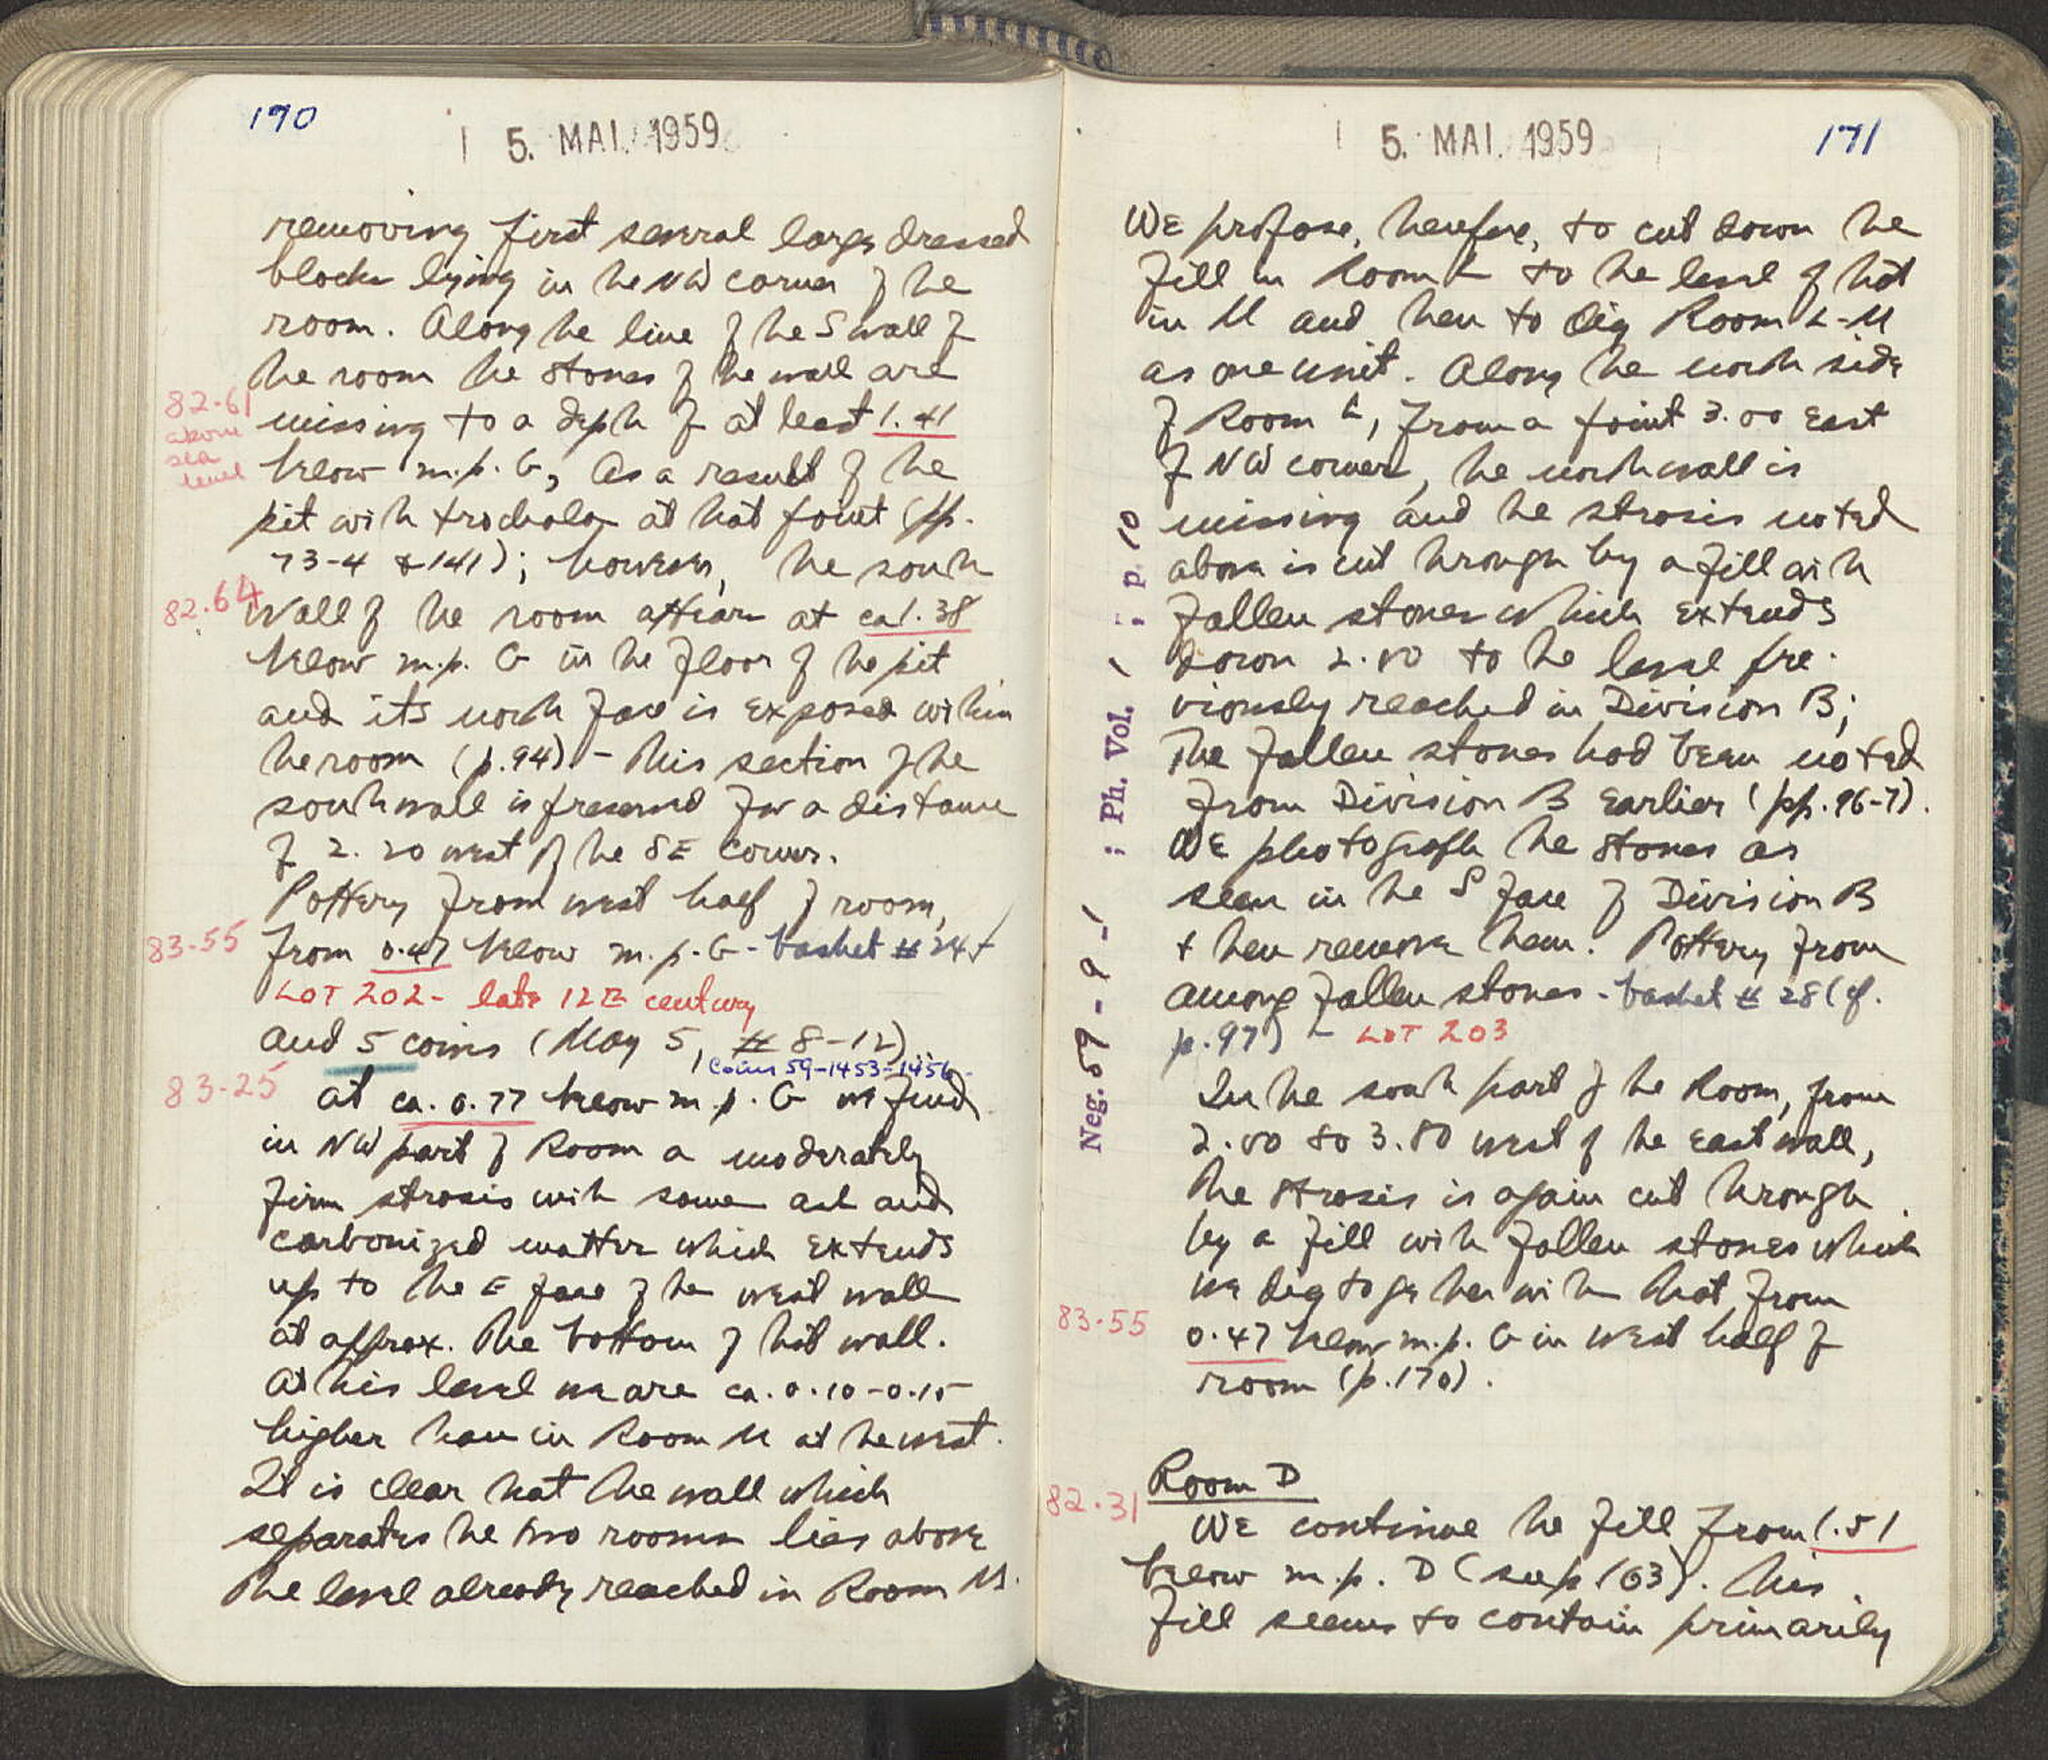 170
5. MAI. 1959
removing first several large dressed
blocks lying in the NW corner of the
room. Along the line of the S wall of
the room the stones of the wall are
82.61 above sea level
missing to a depth of at least 1.41
below m.p. G, as a result of the
pit with trochalos at that point (pp.
73-4 & 141); however, the south
82.64
wall of the room appears at ca 1.38
below m.p. G in the floor of the pit
and its north face is exposed within
the room (p.94) - this section of the
south wall is preserved for a distance
of 2.20 west of the SE corner.
Pottery from west half of room,
83.55
from 0.47 below m.p. G - basket # 24 +
LOT 202 - late 12th century
and 5 coins (May 5, # 8-12)
coins 59-1453-1456
83.25
At ca. 0.77 below m.p. G we find
in NW part of Room a moderately
firm strosis with some ash and
carbonized matter which extends
up to the E face of the west wall
at approx. the bottom of that wall.
At this level we are ca. 0.10-0.15
higher than in Room M at the west.
It is clear that the wall which
separates the two rooms lies above
the level already reached in Room M.
5. MAI. 1959
171
We propose, therefore, to cut down the
fill in Room L to the level of that
in M and then to dig Room L-M
as one unit. Along the north side
of Room L, from a point 3.00 East
of NW corner, the north wall is
missing and the strosis noted
above is cut through by a fill with
fallen stones which extends
down 2.80 to the level pre-
viously reached in Division B;
The fallen stones had been noted
from Division B earlier (pp. 96-7).
We photograph the stones as
seen in the S face of Division B
+ then remove them. Pottery from
among fallen stones - basket # 28 (cf.
p.97) - LOT 203
Neg. 59-9-1 : Ph. Vol. 1 : p. 10
In the south part of the Room, from
2.00 to 3.80 west of the East wall,
the strosis is again cut through
by a fill with fallen stones which
we dig together with that from
83.55
0.47 below m.p. G in west half of
room (p.170).
Room D
82.31
We continue the fill from 1.51
below m.p. D (see p.163). This
fill seems to contain primarily